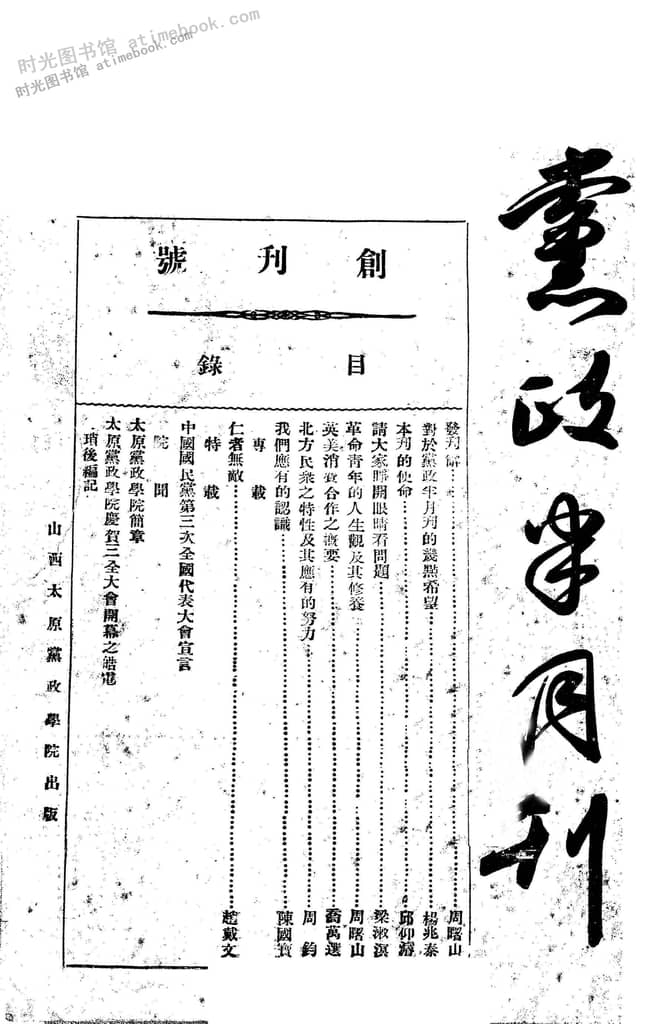 时光图书馆 atimebook.com
时光图书馆 atimebook.com
黨政半月刊
創刊號
目錄
發刊辭 周曙山
對於黨政半月刊的幾點希望 楊兆泰
本刊的使命 邱仰濬
請大家睜開眼睛看問題 梁漱溟
革命青年的人生觀及其修養 周曙山
英美消費合作之概要 喬萬選
北方民衆之特性及其應有的努力 周鈞
我們應有的認識 陳國寶
專載
仁者無敵 趙戴文
特載
中國國民黨第三次全國代表大會宣言
院聞
太原黨政學院簡章
太原黨政學院慶賀三全大會開幕之皓電
後編記
山西太原黨政學院出版